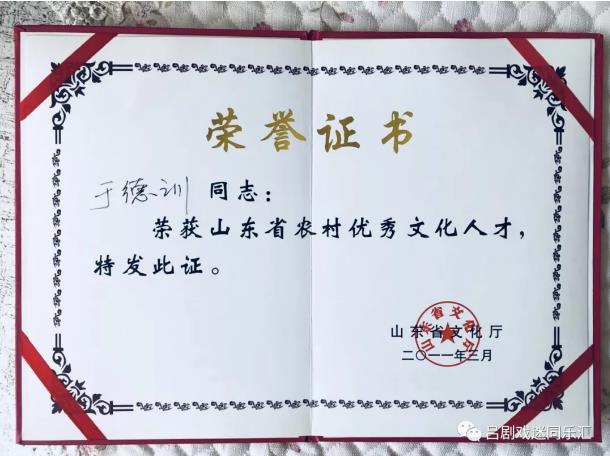 荣誉证书
于德训 同志：
荣获山东省农村优秀文化人才，
特发此证。
山东省文化厅
山东省文化厅
二〇一一年三月
吕剧戏迷同乐汇